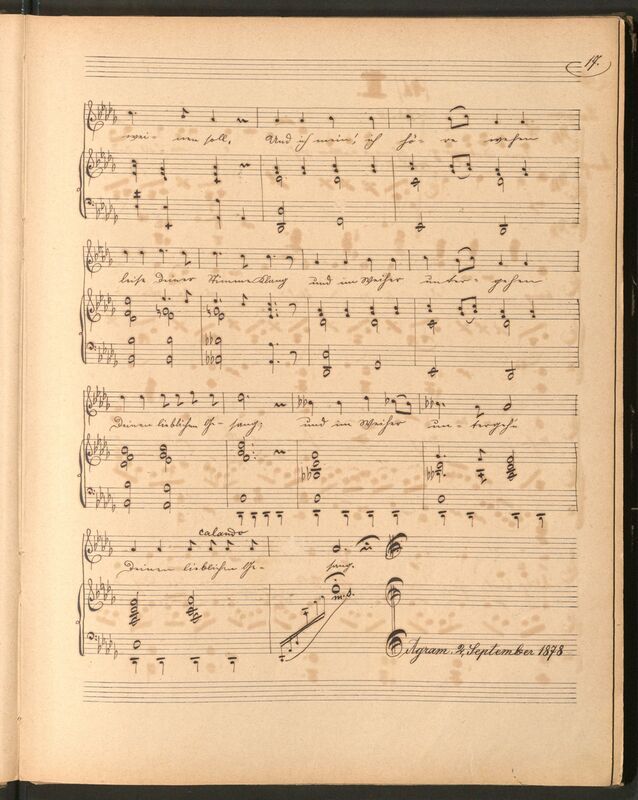 17.
wei- nen soll. Und ich mein', ich hö- re wehen
leise deiner Stimme Klang und im Weiher unter- gehen
Deinen lieblichen Ge- sang, und im Weiher un- tergehn
calando
Deinen lieblichen Ge- sang.
m.s.
Agram. 2, September 1878